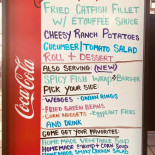 Coca-Cola
FRIED CATFISH FILLET
W/ ÉTOUFFÉE SAUCE
CHEESY RANCH POTATOES
CUCUMBER/TOMATO SALAD
ROLL + DESSERT
ALSO SERVING (NEW)
SPICY FISH WRAP OR BURGER
PICK YOUR SIDE:
WEDGES - ONION RINGS
FRIED GREEN BEANS
CORN NUGGETS - EGGPLANT FRIES
AND DRINK
COME GET YOUR FAVORITES:
HOMEMADE VEGETABLE SOUP
HOMEMADE SHRIMP + CORN SOUP
HOMEMADE CHICKEN SALAD